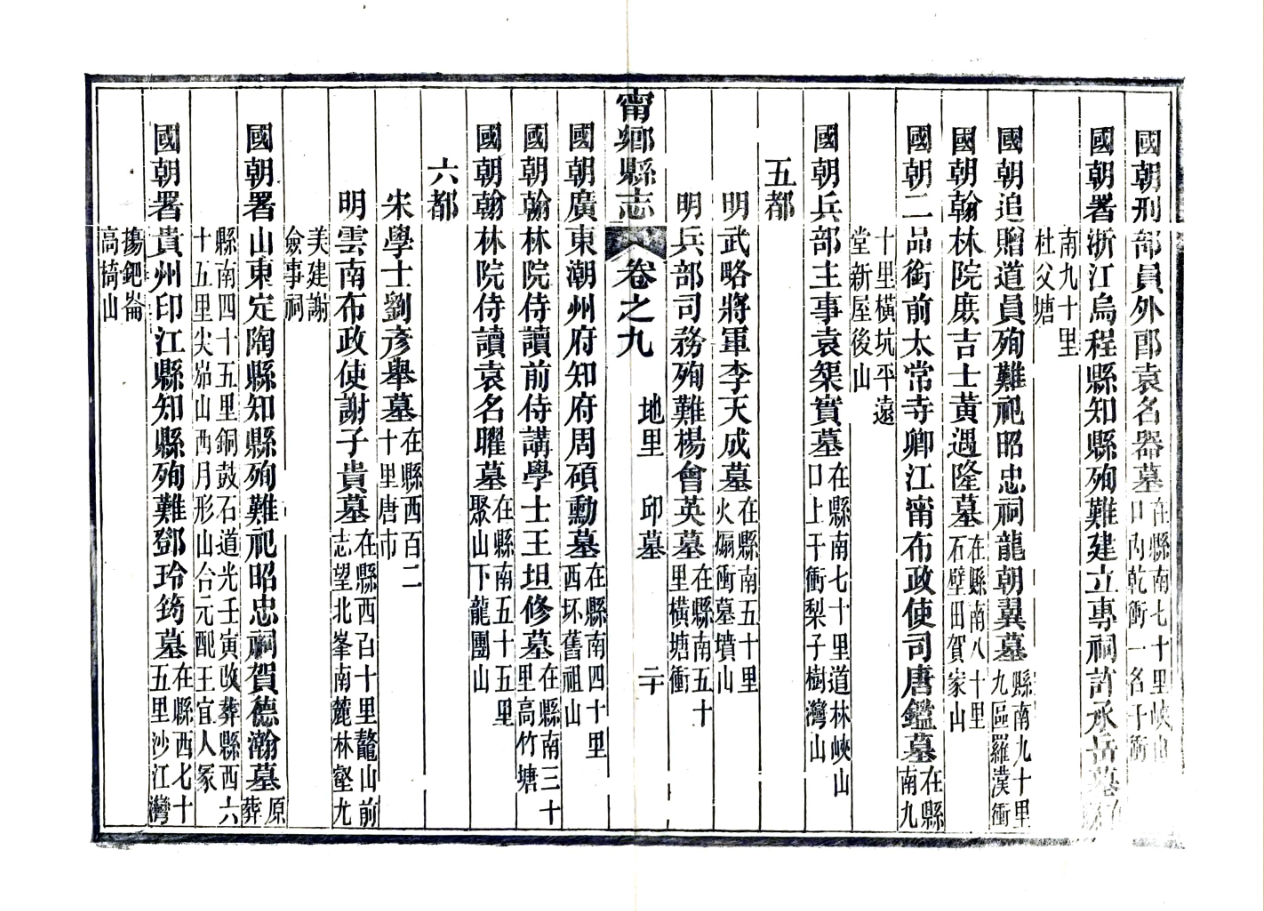 國朝刑部員外郎袁名器墓在縣南七十里峽山口內乾衝一名干衝
國朝署浙江烏程縣知縣殉難建立專祠許承岳墓在縣
南九十里杜父塘
國朝追贈道員殉難祀昭忠祠龍朝翼墓縣南九十里九區羅漢衝
國朝翰林院庶吉士黃遇隆墓在縣南八十里石壁田賀家山
國朝二品銜前太常寺卿江甯布政使司唐鑑墓在縣南九
十里橫坑平遠堂新屋後山
國朝兵部主事袁榘實墓在縣南七十里道林峽山口上干衝梨子樹灣山
五都
明武略將軍李天成墓在縣南五十里火煽衝墓墳山
明兵部司務殉難楊會英墓在縣南五十里橫塘衝
甯鄉縣志 卷之九 地里 邱墓 二十
國朝廣東潮州府知府周碩勳墓在縣南四十里西坏舊祖山
國朝翰林院侍讀前侍講學士王坦修墓在縣南三十里高竹塘
國朝翰林院侍讀袁名曜墓在縣南五十五里聚山下龍團山
六都
宋學士劉彥舉墓在縣西百二十里唐市
明雲南布政使謝子貴墓在縣西百十里鼇山前志望北峯南麓林壑尤
美建謝僉事祠
國朝署山東定陶縣知縣殉難祀昭忠祠賀德瀚墓原葬
縣南四十五里銅鼓石道光壬寅改葬縣西六十五里尖峁山西月形山合元配王宜人冢
國朝署貴州印江縣知縣殉難鄧玲筠墓在縣西七十五里沙江灣
搗鈀崙高掎山